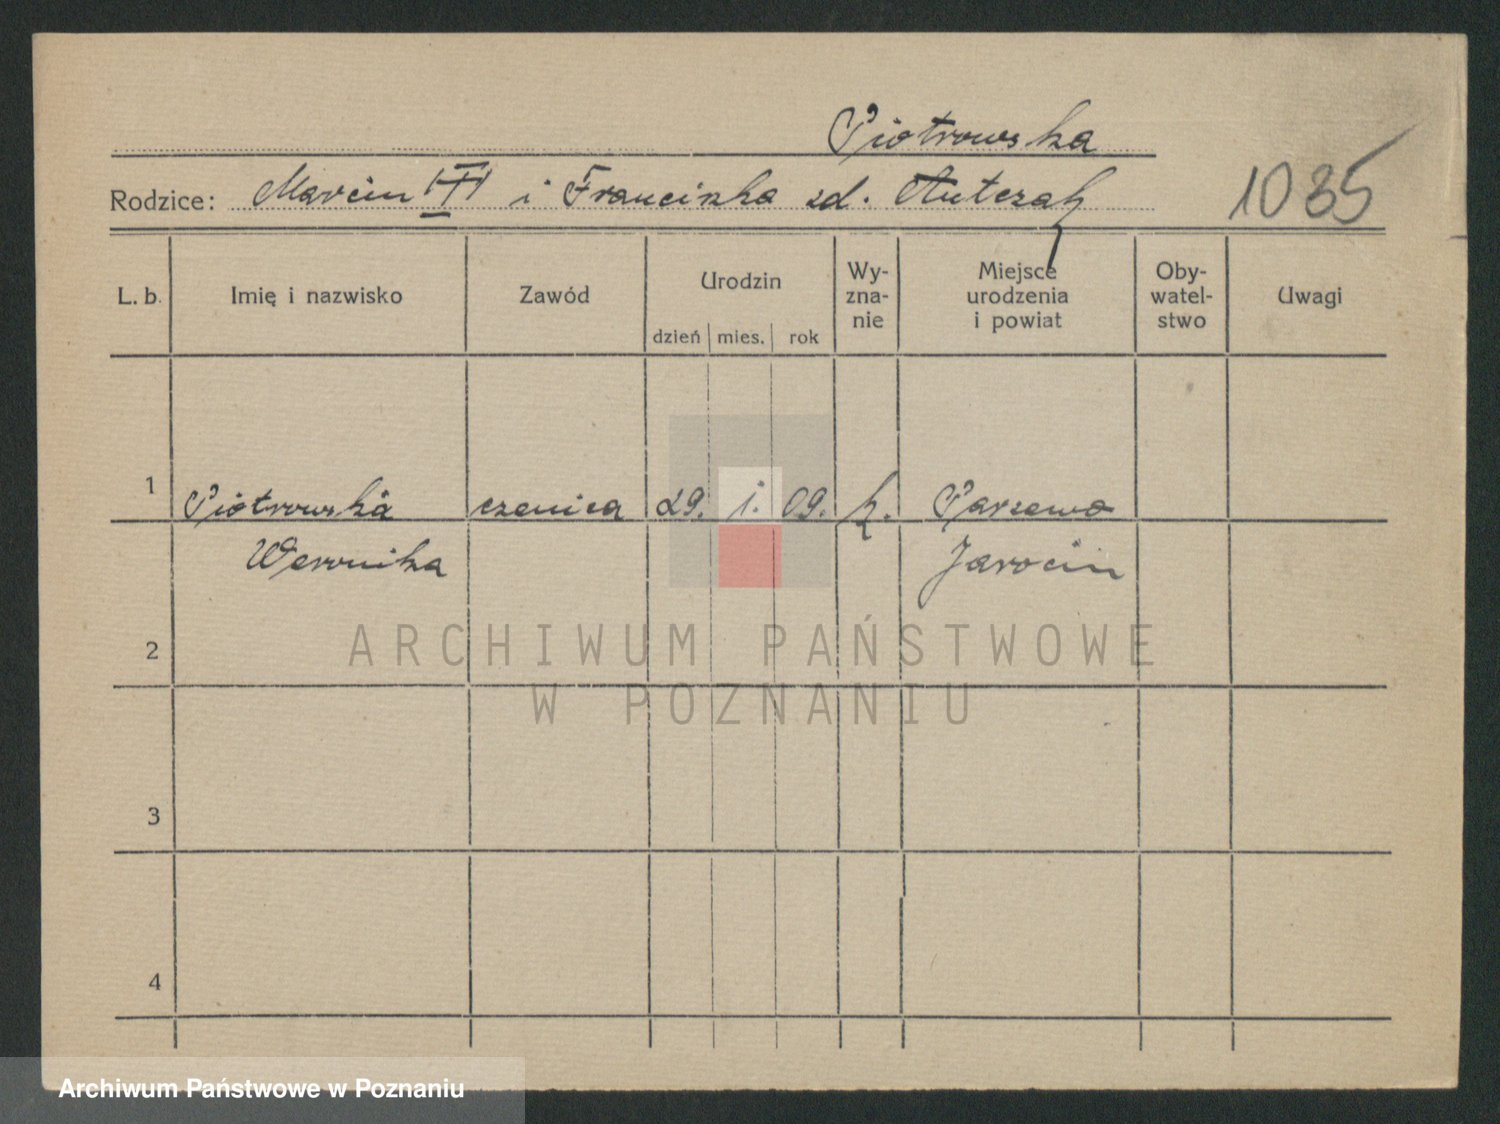 Piotrowska
Rodzice: Marcin i Franciszka zd. Antczak
1035
L. b. Imię i nazwisko Zawód Urodzin dzień mies. rok Wy-zna-nie Miejsce urodzenia i powiat Oby-watel-stwo Uwagi
1 Piotrowska czenica 29. 1. 09. k. Parzewo
Weronika Jarocin
2
3
4
ARCHIWUM PAŃSTWOWE
W POZNANIU
Archiwum Państwowe w Poznaniu